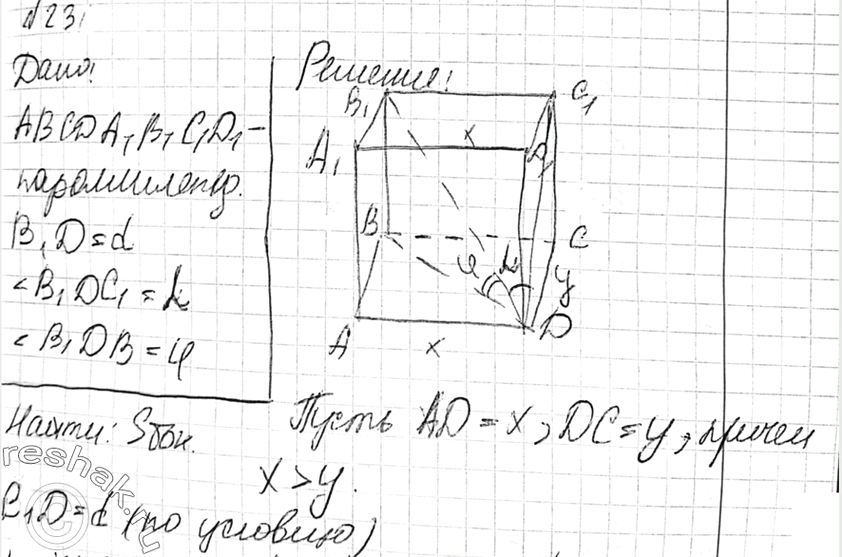 №23.
Дано:
ABCDA₁B₁C₁D₁ –
параллелепед.
B₁D=d
<B₁DC₁=α
<B₁DB=φ
Найти: Sбок.
Решение:
B₁ C₁
A₁ x D₁
B C
φ α y
A x D
Пусть AD=x, DC=y, причем
x>y.
B₁D=d (по условию)
reshak.ru